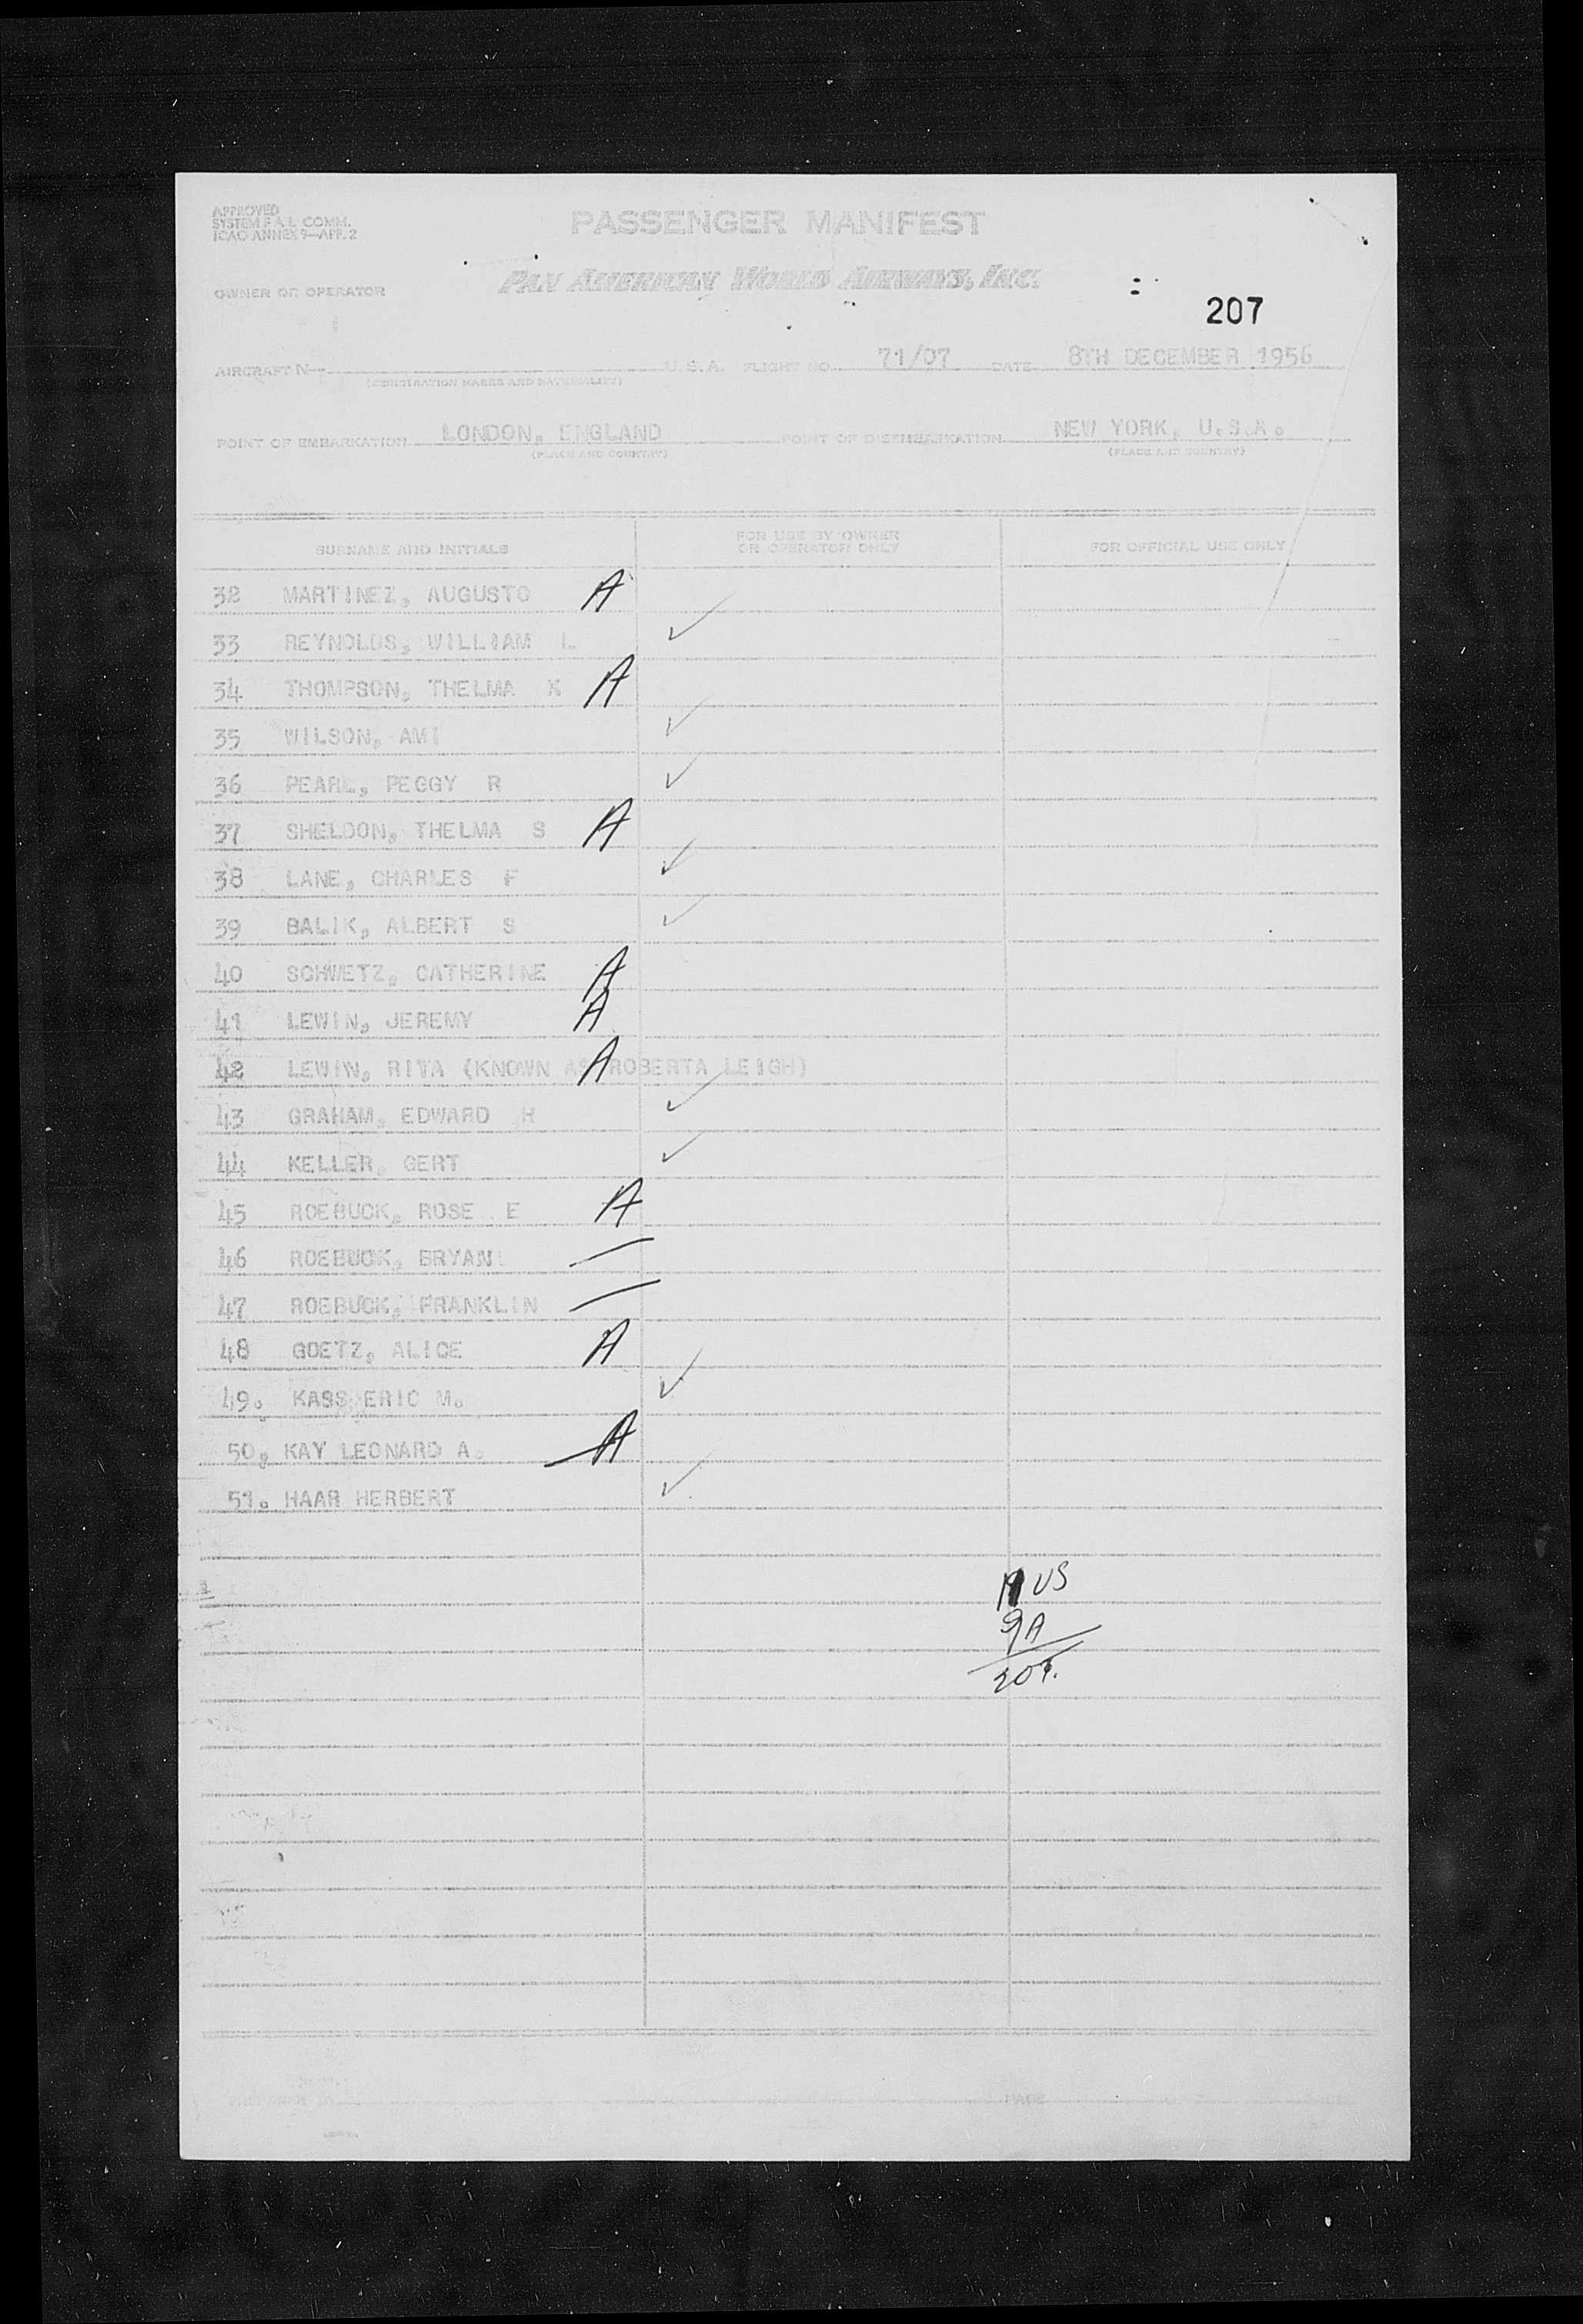 APPROVED
SYSTEM F.A.L. COMM.
ICAO ANNEX 9—APP. 2
PASSENGER MANIFEST
OWNER OR OPERATOR
PAN AMERICAN WORLD AIRWAYS, INC.
207
AIRCRAFT N— U.S.A. FLIGHT NO. 71/07 DATE 8TH DECEMBER 1956
(REGISTRATION MARKS AND NATIONALITY)
POINT OF EMBARKATION LONDON, ENGLAND POINT OF DISEMBARKATION NEW YORK, U.S.A.
(PLACE AND COUNTRY) (PLACE AND COUNTRY)
SURNAME AND INITIALS
FOR USE BY OWNER
OR OPERATOR ONLY
FOR OFFICIAL USE ONLY
32 MARTINEZ, AUGUSTO A
33 REYNOLDS, WILLIAM L ✓
34 THOMPSON, THELMA K A
35 WILSON, AMI ✓
36 PEARL, PEGGY R ✓
37 SHELDON, THELMA S A
38 LANE, CHARLES F ✓
39 BALIK, ALBERT S ✓
40 SCHWETZ, CATHERINE A
41 LEWIN, JEREMY A
42 LEWIN, RITA (KNOWN AS ROBERTA LEIGH) A
43 GRAHAM, EDWARD H ✓
44 KELLER, GERT ✓
45 ROEBUCK, ROSE E A
46 ROEBUCK, BRYAN —
47 ROEBUCK, FRANKLIN —
48 GOETZ, ALICE A
49. KASS ERIC M. ✓
50, KAY LEONARD A. A
51. HAAR HERBERT ✓
11 US
9A
20
PAGE